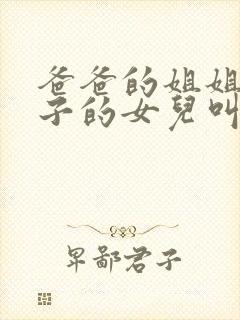 爸爸的姐姐
子的女兒叫
卑鄙君子